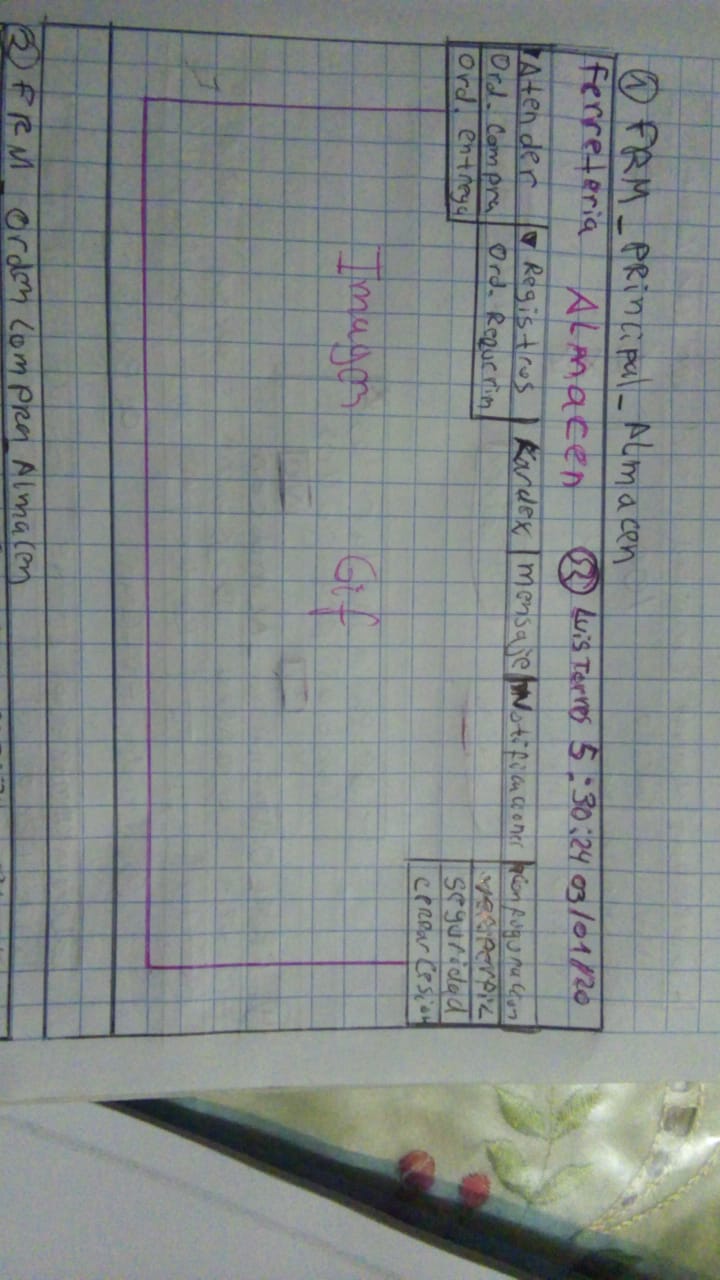 ① FRM_PRincipal_Almacen
Ferreteria Almacen Luis Torres 5:30:24 03/01/20
Atender Registros Kardex mensaje Notificaciones Configuracion
Ord. Compra Ord. Requerim
Ord. Entrega
ver perfil
Seguridad
cerrar Cesion
Imagen Gif
② FRM_Orden Compra_Almacen